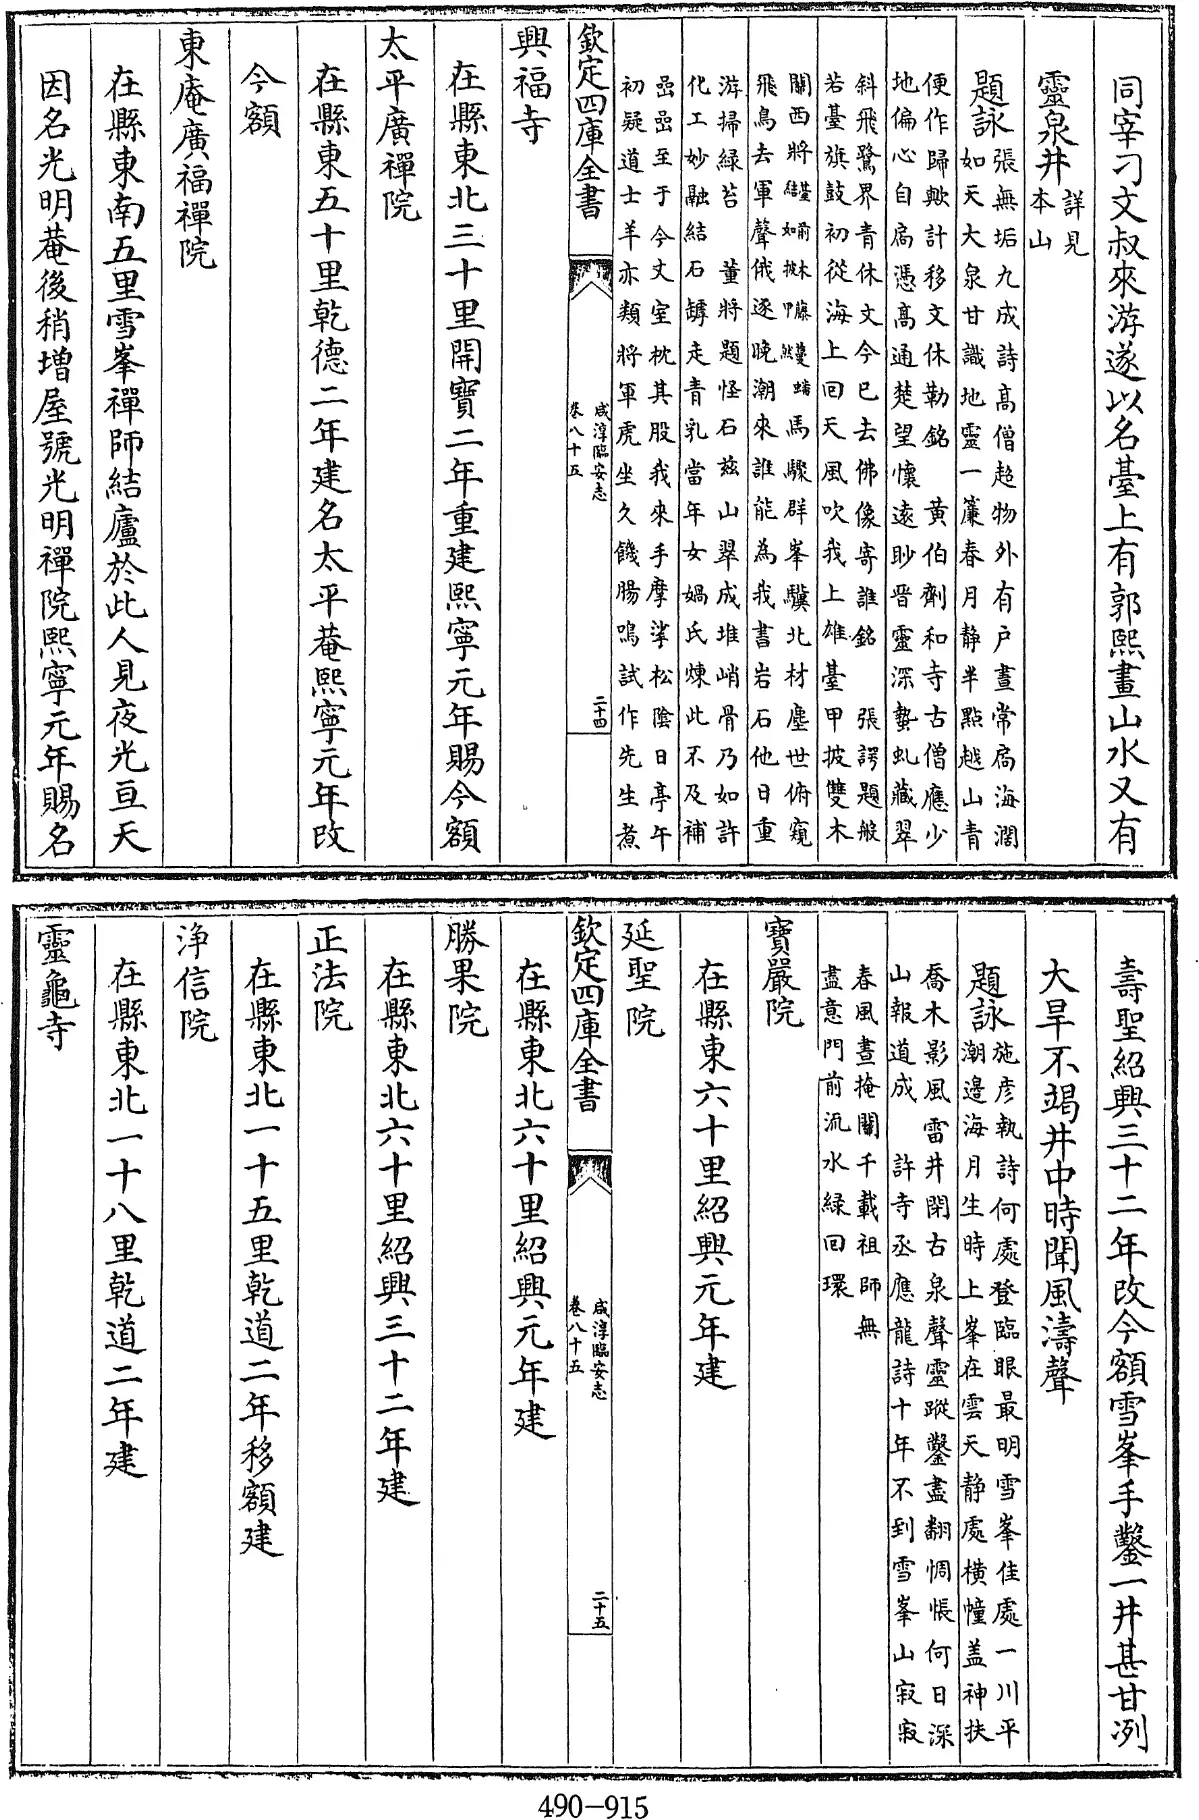 同宰刁文叔來游遂以名臺上有郭熙畫山水又有
靈泉井詳見本山
題詠張無垢九成詩高僧超物外有户晝常扃海濶
如天大泉甘識地靈一簾春月静半點越山青
便作歸歟計移文休勒銘　黄伯劑和寺古僧應少
地偏心自扃憑高通楚望懷遠眇晋靈深蟄虬藏翠
斜飛鷺界青休文今已去佛像寄誰銘　張諤題般
若臺旗鼓初從海上回天風吹我上雄臺甲披雙木
關西將如披甲然馬驟群峯驥北材塵世俯窺
飛鳥去軍聲俄逐晚潮來誰能為我書岩石他日重
游掃緑苔　董將題怪石兹山翠成堆峭骨乃如許
化工妙融結石罅走青乳當年女媧氏煉此不及補
嵒嵒至于今丈室枕其股我來手摩挲松陰日亭午
初疑道士羊亦類將軍虎坐久饑腸鳴試作先生煮
欽定四庫全書
咸淳臨安志
卷八十五
二十四
興福寺
在縣東北三十里開寶二年重建熙寧元年賜今額
太平廣禪院
在縣東五十里乾德二年建名太平菴熙寧元年改
今額
東庵廣福禪院
在縣東南五里雪峯禪師結廬於此人見夜光亘天
因名光明菴後稍增屋號光明禪院熙寧元年賜名
壽聖紹興三十二年改今額雪峯手鑿一井甚甘冽
大旱不竭井中時聞風濤聲
題詠施彦執詩何處登臨眼最明雪峯佳處一川平
潮邊海月生時上峯在雲天静處横幢盖神扶
喬木影風雷井閉古泉聲靈蹤鑿盡翻惆悵何日深
山報道成　許寺丞應龍詩十年不到雪峯山寂寂
春風晝掩關千載祖師無
盡意門前流水緑回環
寶嚴院
在縣東六十里紹興元年建
延聖院
欽定四庫全書
咸淳臨安志
卷八十五
二十五
在縣東北六十里紹興元年建
勝果院
在縣東北六十里紹興三十二年建
正法院
在縣東北一十五里乾道二年移額建
浄信院
在縣東北一十八里乾道二年建
靈龜寺
490-915